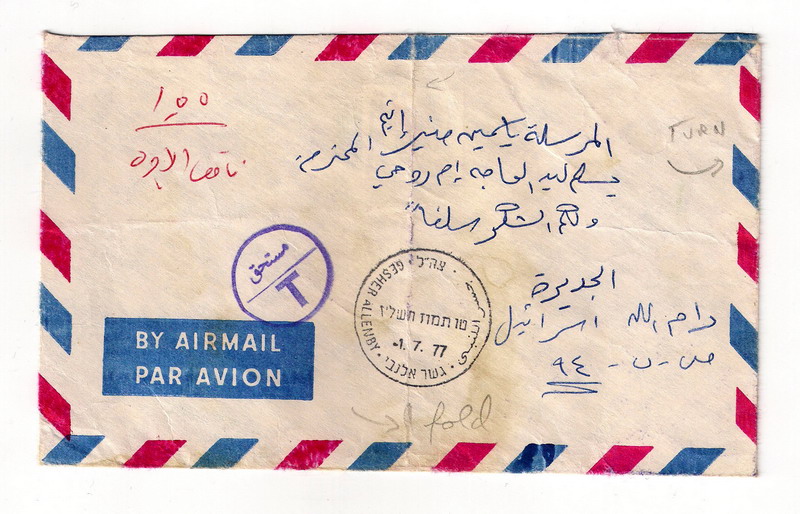 ١٥٥
ناقص الاجرة
المرسلة ياسمين
المحترمة
يسلم ليد الحاجه ام روحي
ولكم الشكر سلفا"
TURN
مستحق
T
צה"ל
GESHER ALLENBY
טו תמוז תשל"ז
-1.7.77
גשר אלנבי
الجديرة
رام الله اسرائيل
ص-ب- ٩٤
BY AIRMAIL
PAR AVION
fold